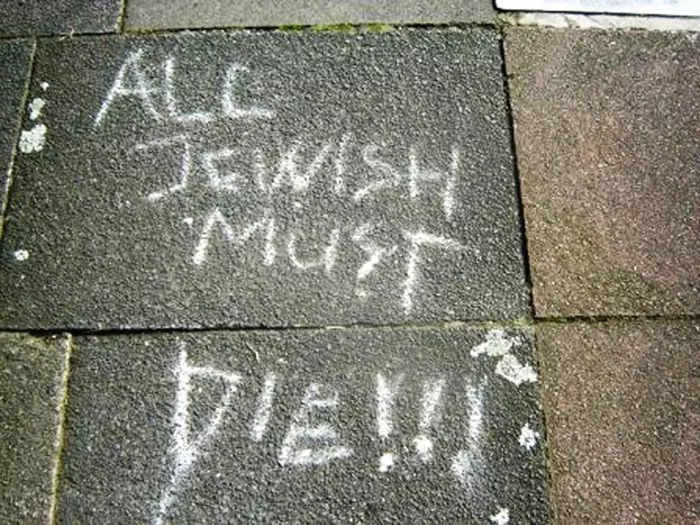 ALL
JEWISH
MUST
DIE!!!